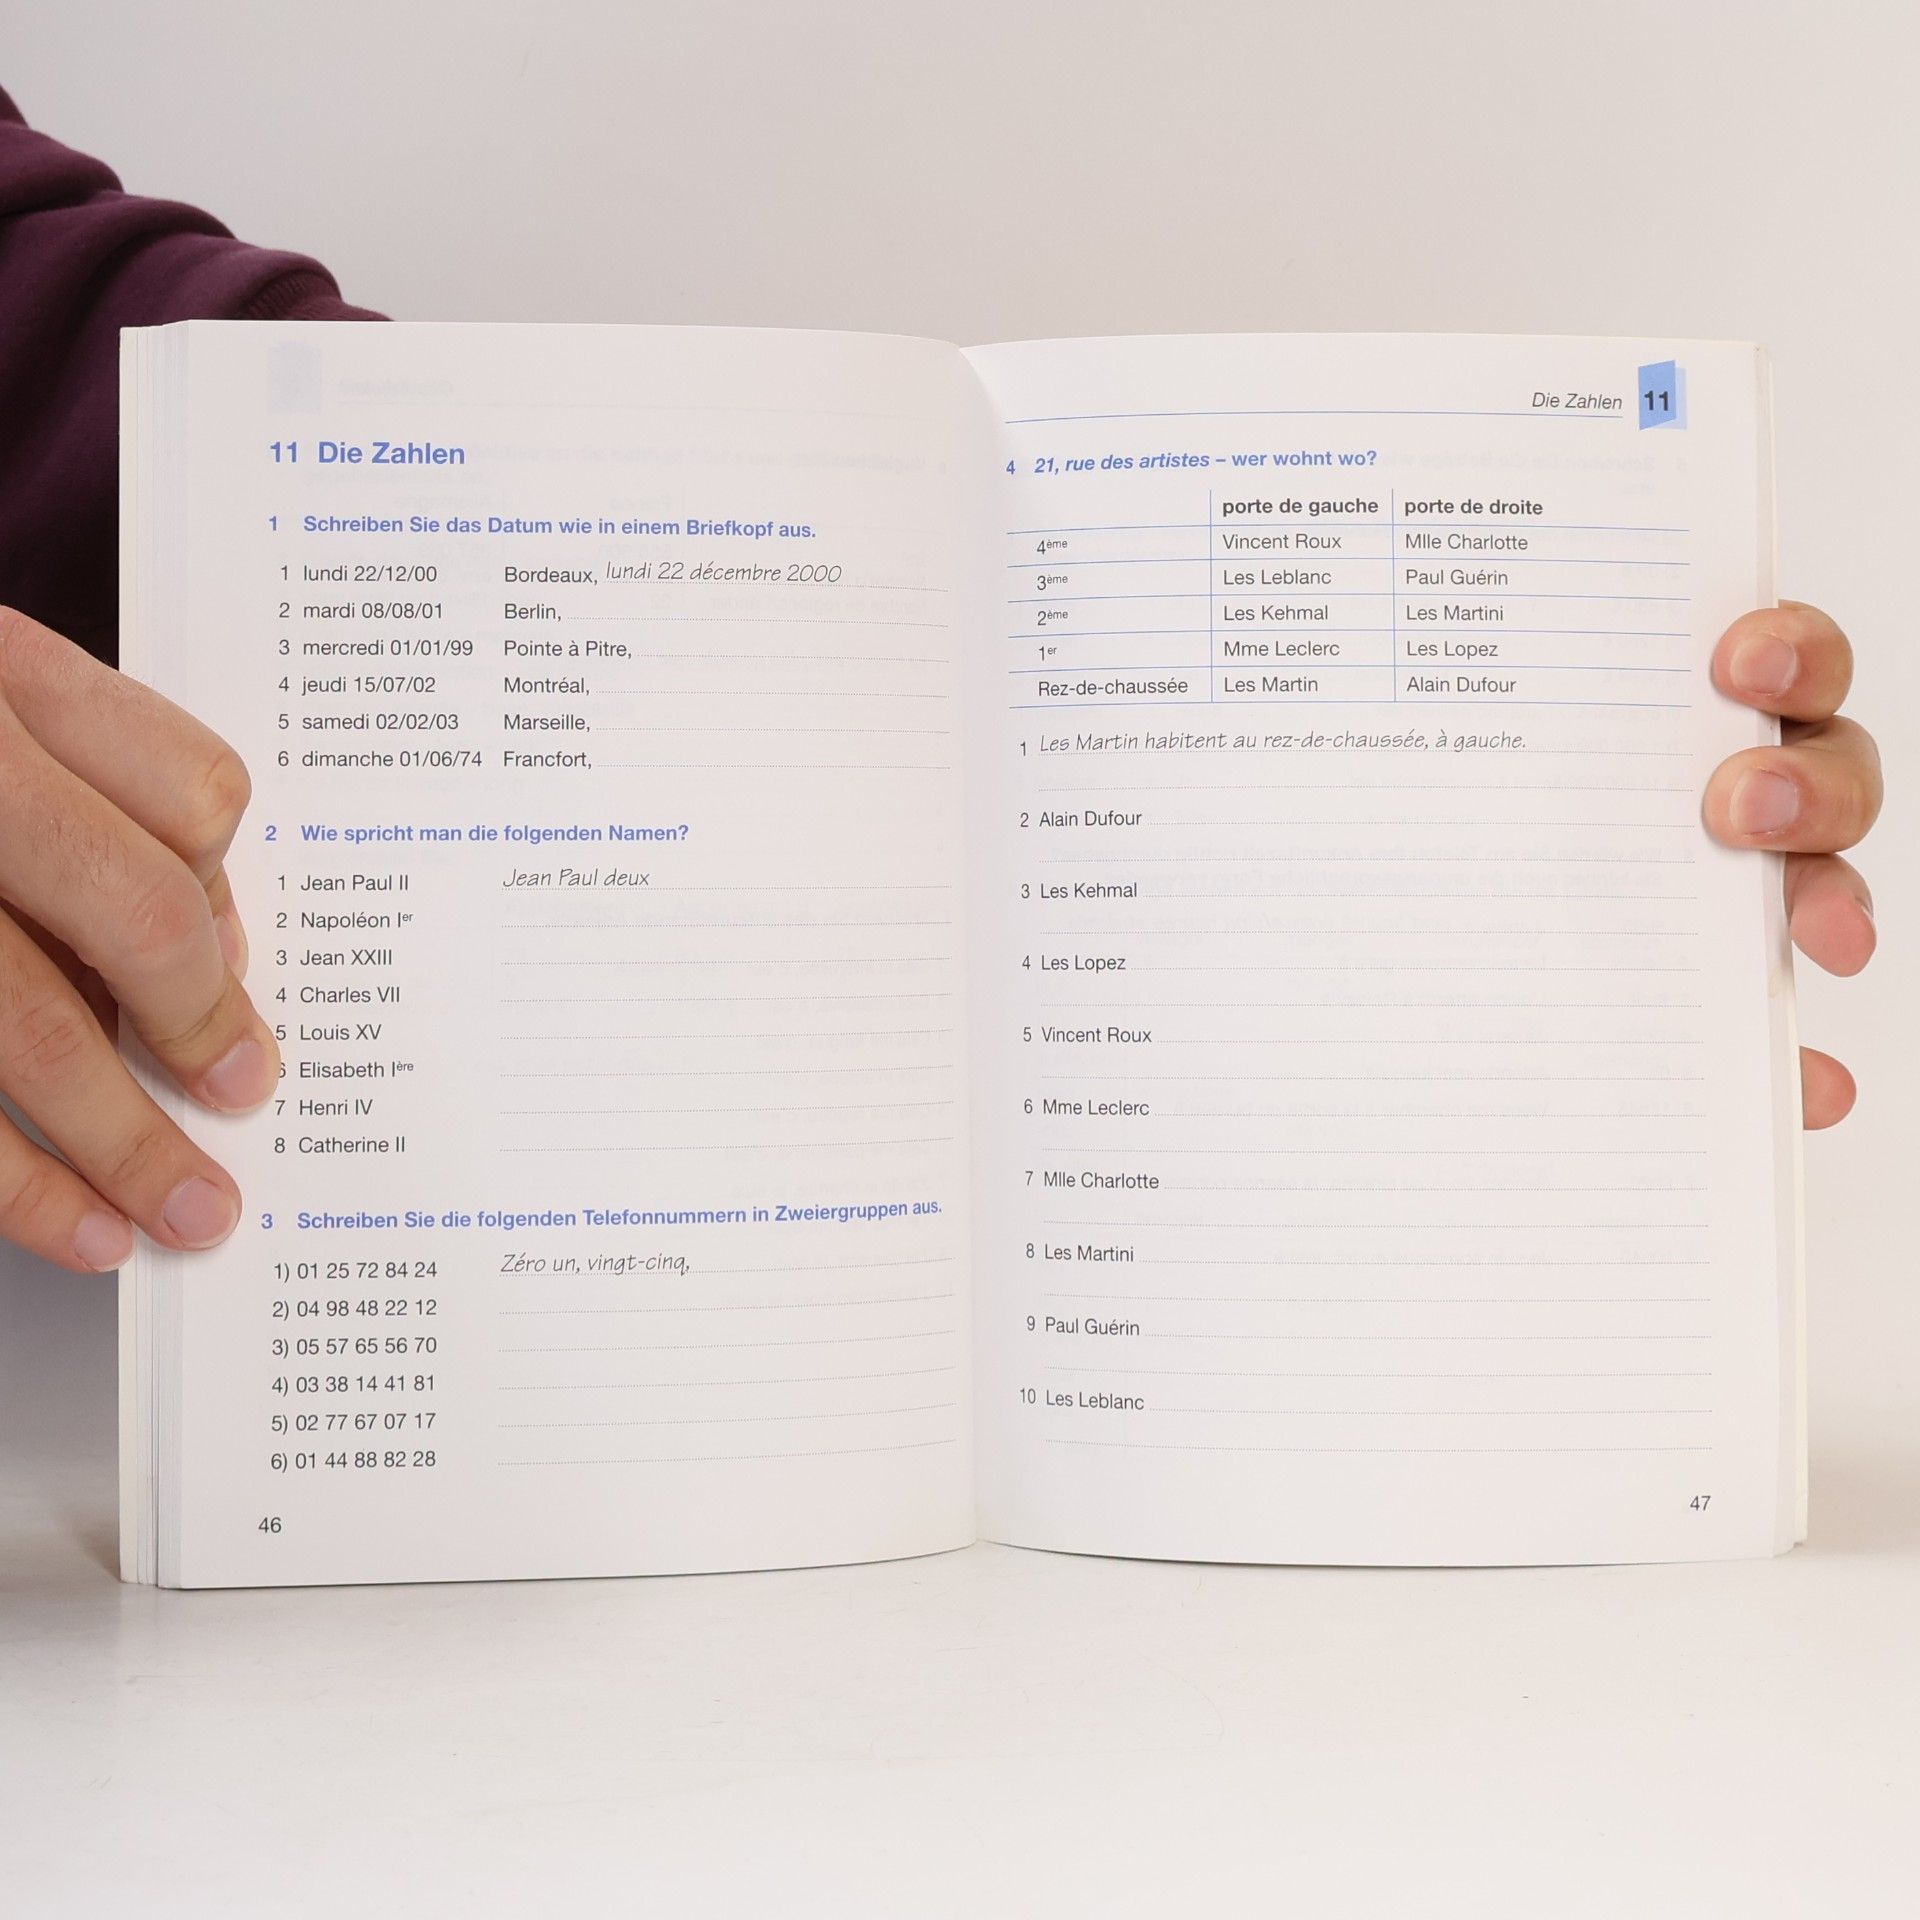 11 Die Zahlen
1 Schreiben Sie das Datum wie in einem Briefkopf aus.
1 lundi 22/12/00 Bordeaux, lundi 22 décembre 2000
2 mardi 08/08/01 Berlin,
3 mercredi 01/01/99 Pointe à Pitre,
4 jeudi 15/07/02 Montréal,
5 samedi 02/02/03 Marseille,
6 dimanche 01/06/74 Francfort,
2 Wie spricht man die folgenden Namen?
1 Jean Paul II Jean Paul deux
2 Napoléon Ier
3 Jean XXIII
4 Charles VII
5 Louis XV
6 Elisabeth Ière
7 Henri IV
8 Catherine II
3 Schreiben Sie die folgenden Telefonnummern in Zweiergruppen aus.
1) 01 25 72 84 24 Zéro un, vingt-cinq,
2) 04 98 48 22 12
3) 05 57 65 56 70
4) 03 38 14 41 81
5) 02 77 67 07 17
6) 01 44 88 82 28
46
Die Zahlen 11
4 21, rue des artistes – wer wohnt wo?
porte de gauche porte de droite
4ème Vincent Roux Mlle Charlotte
3ème Les Leblanc Paul Guérin
2ème Les Kehmal Les Martini
1er Mme Leclerc Les Lopez
Rez-de-chaussée Les Martin Alain Dufour
1 Les Martin habitent au rez-de-chaussée, à gauche.
2 Alain Dufour
3 Les Kehmal
4 Les Lopez
5 Vincent Roux
6 Mme Leclerc
7 Mlle Charlotte
8 Les Martini
9 Paul Guérin
10 Les Leblanc
47